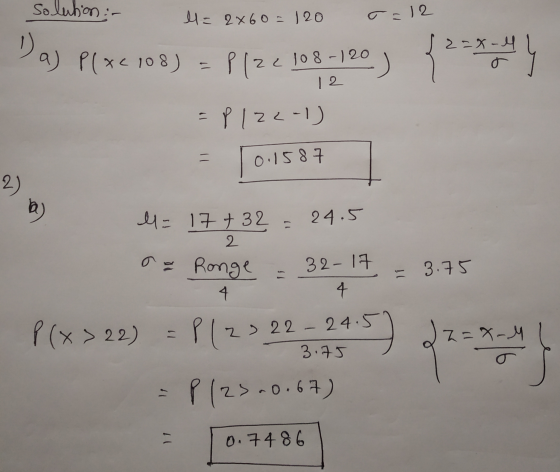 Solution:- μ = 2×60 = 120 σ = 12
1) a) P(x < 108) = P(z < (108-120)/12) {z = (x-μ)/σ}
= P(z < -1)
= 0.1587
2)
b) μ = (17+32)/2 = 24.5
σ = Range/4 = (32-17)/4 = 3.75
P(x > 22) = P(z > (22-24.5)/3.75) {z = (x-μ)/σ}
= P(z > -0.67)
= 0.7486